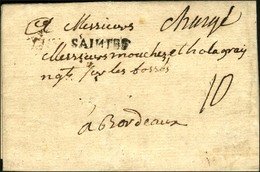 A Messieurs chargé
SAINTES
Messieurs mouchez et holagray
ngts sur les fossés
10
a Bordeaux